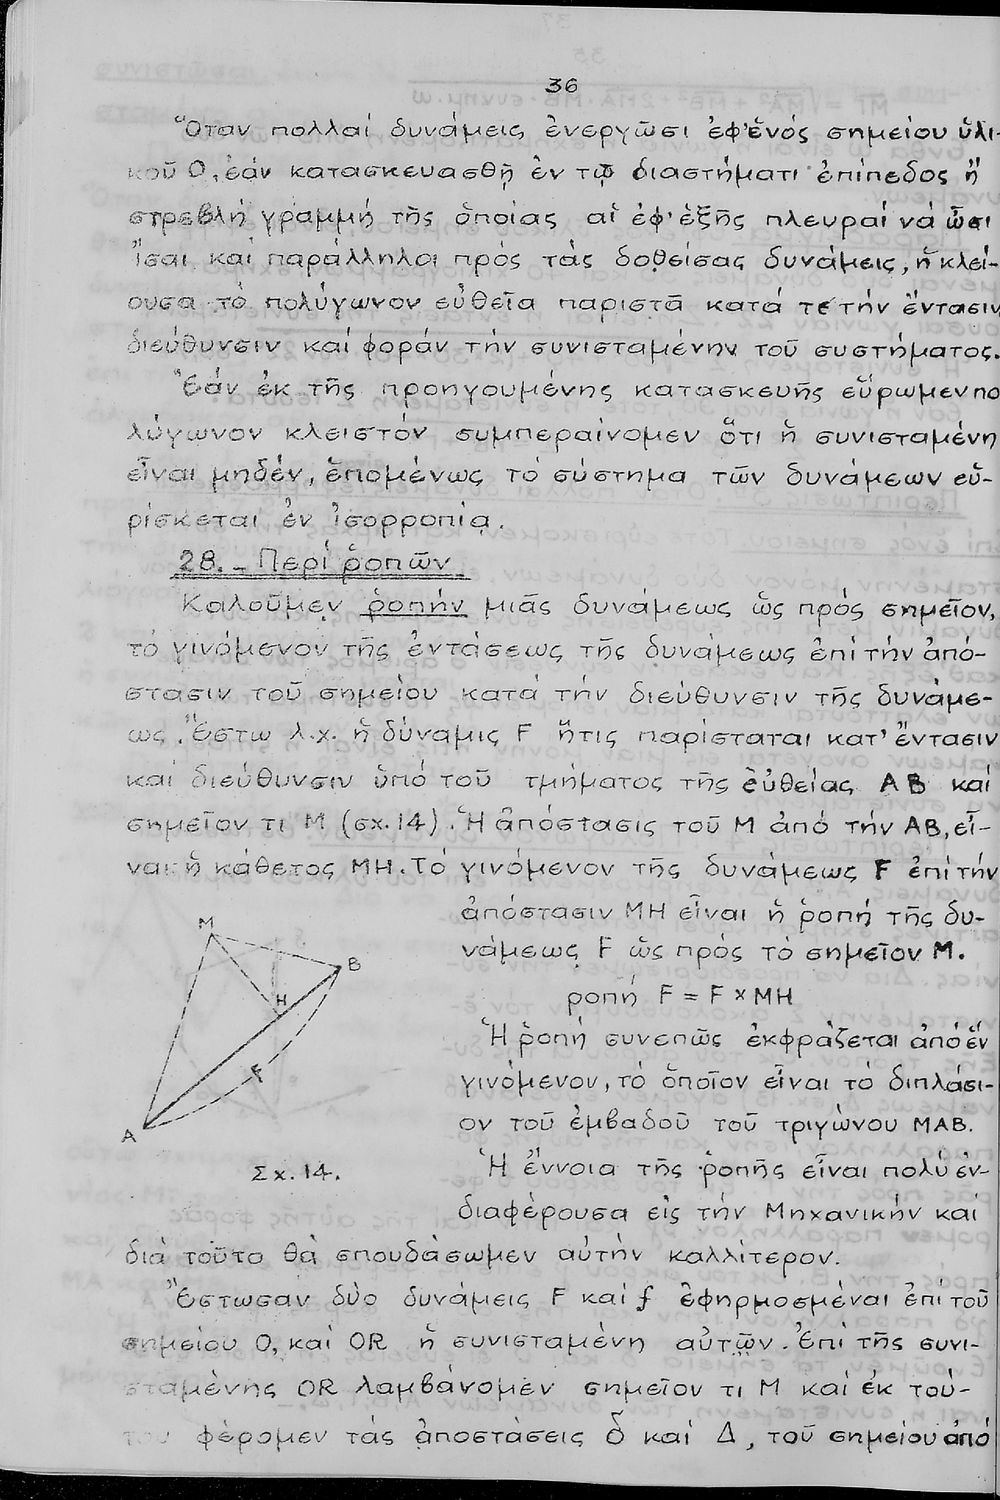 36
Ὅταν πολλαί δυνάμεις ἐνεργῶσι ἐφ' ἑνός σημείου ὑλι-
κοῦ Ο, ἐάν κατασκευασθῇ ἐν τῷ διαστήματι ἐπίπεδος ἤ
στρεβλή γραμμή τῆς ὁποίας αἱ ἐφ' ἑξῆς πλευραί νά ὦσι
ἴσαι καί παράλληλοι πρός τάς δοθείσας δυνάμεις, ἡ κλεί-
ουσα τό πολύγωνον εὐθεῖα παριστᾶ κατά τε τήν ἔντασιν
διεύθυνσιν καί φοράν τήν συνισταμένην τοῦ συστήματος.
Ἐάν ἐκ τῆς προηγουμένης κατασκευῆς εὕρωμεν πο
λύγωνον κλειστόν συμπεραίνομεν ὅτι ἡ συνισταμένη
εἶναι μηδέν, ἑπομένως τό σύστημα τῶν δυνάμεων εὑ-
ρίσκεται ἐν ἰσορροπίᾳ.
28. - Περί ῥοπῶν
Καλοῦμεν ῥοπήν μιᾶς δυνάμεως ὡς πρός σημεῖον,
τό γινόμενον τῆς ἐντάσεως τῆς δυνάμεως ἐπί τήν ἀπό-
στασιν τοῦ σημείου κατά τήν διεύθυνσιν τῆς δυνάμε-
ως. Ἔστω λ.χ. ἡ δύναμις F ἥτις παρίσταται κατ' ἔντασιν
καί διεύθυνσιν ὑπό τοῦ τμήματος τῆς εὐθείας ΑΒ καί
σημεῖον τι Μ (σχ. 14). Ἡ ἀπόστασις τοῦ Μ ἀπό τήν ΑΒ, εἶ-
ναι ἡ κάθετος ΜΗ. Τό γινόμενον τῆς δυνάμεως F ἐπί τήν
ἀπόστασιν ΜΗ εἶναι ἡ ῥοπή τῆς δυ-
νάμεως F ὡς πρός τό σημεῖον Μ.
ροπή F = F × ΜΗ
Ἡ ῥοπή συνεπῶς ἐκφράζεται ἀπό ἕν
γινόμενον, τό ὁποῖον εἶναι τό διπλάσι-
ον τοῦ ἐμβαδοῦ τοῦ τριγώνου ΜΑΒ.
Μ
Β
Η
F
Α
Σχ. 14.
Ἡ ἔννοια τῆς ῥοπῆς εἶναι πολύ ἐν-
διαφέρουσα εἰς τήν Μηχανικήν καί
διά τοῦτο θά σπουδάσωμεν αὐτήν καλλίτερον.
Ἔστωσαν δύο δυνάμεις F καί f ἐφηρμοσμέναι ἐπί τοῦ
σημείου Ο, καί OR ἡ συνισταμένη αὐτῶν. Ἐπί τῆς συνι-
σταμένης OR λαμβάνομεν σημεῖον τι Μ καί ἐκ τού-
του φέρομεν τάς ἀποστάσεις δ καί Δ, τοῦ σημείου ἀπό